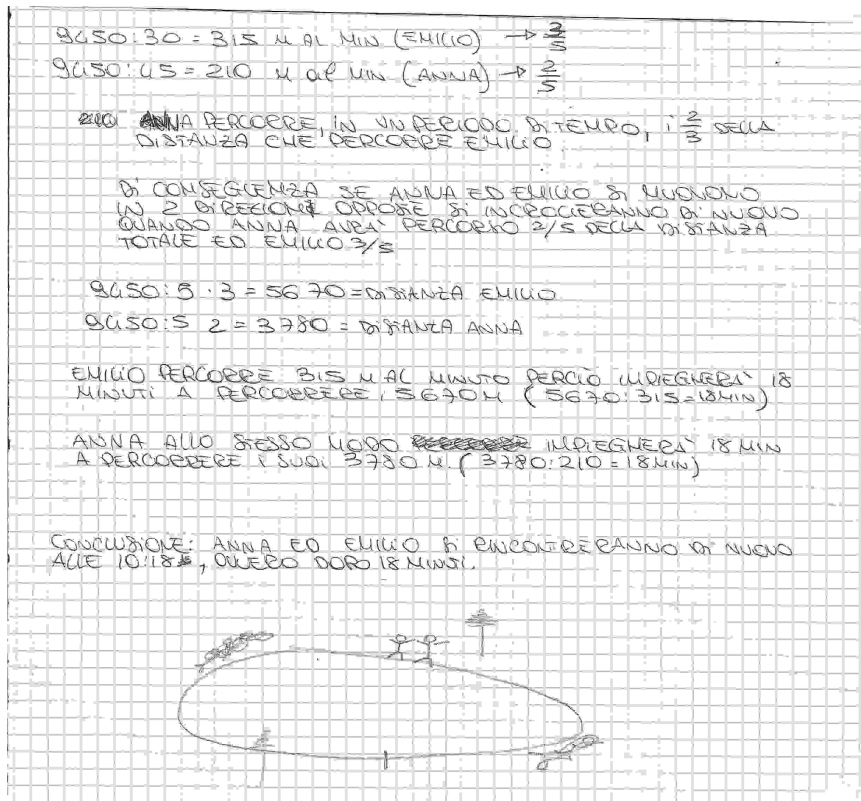 9450:30 = 315 M AL MIN (EMILIO) → 3/5
9450:45 = 210 M al MIN (ANNA) → 2/5
ANNA PERCORRE, IN UN PERIODO DI TEMPO, i 2/3 DELLA
DISTANZA CHE PERCORRE EMILIO.
DI CONSEGUENZA SE ANNA ED EMILIO SI MUOVONO
IN 2 DIREZIONI OPPOSTE SI INCROCIERANNO DI NUOVO
QUANDO ANNA AVRA' PERCORSO 2/5 DELLA DISTANZA
TOTALE ED EMILIO 3/5
9450:5 · 3 = 5670 = DISTANZA EMILIO
9450:5 2 = 3780 = DISTANZA ANNA
EMILIO PERCORRE 315 M AL MINUTO PERCIÒ IMPIEGHERA' 18
MINUTI A PERCORRERE i 5670 M (5670:315=18MIN)
ANNA ALLO STESSO MODO IMPIEGHERA' 18 MIN
A PERCORRERE i SUOi 3780 M. (3780:210=18MIN)
CONCLUSIONE: ANNA ED EMILIO SI RINCONTRERANNO DI NUOVO
ALLE 10:18, OVVERO DOPO 18 MINUTI.